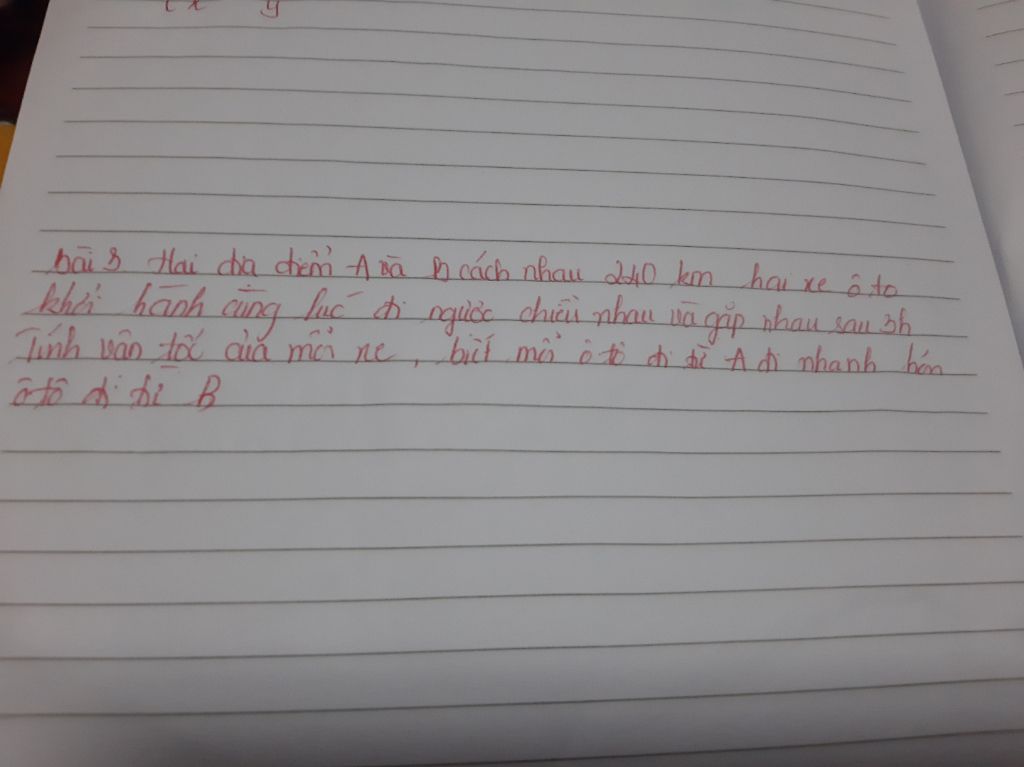 x y
bài 3 Hai địa điểm A và B cách nhau 240 km hai xe ô to
khởi hành cùng lúc đi ngược chiều nhau và gặp nhau sau 3h
Tính vận tốc của mỗi xe, biết mỗi ô tô đi từ A đi nhanh hơn
ô tô đi từ B